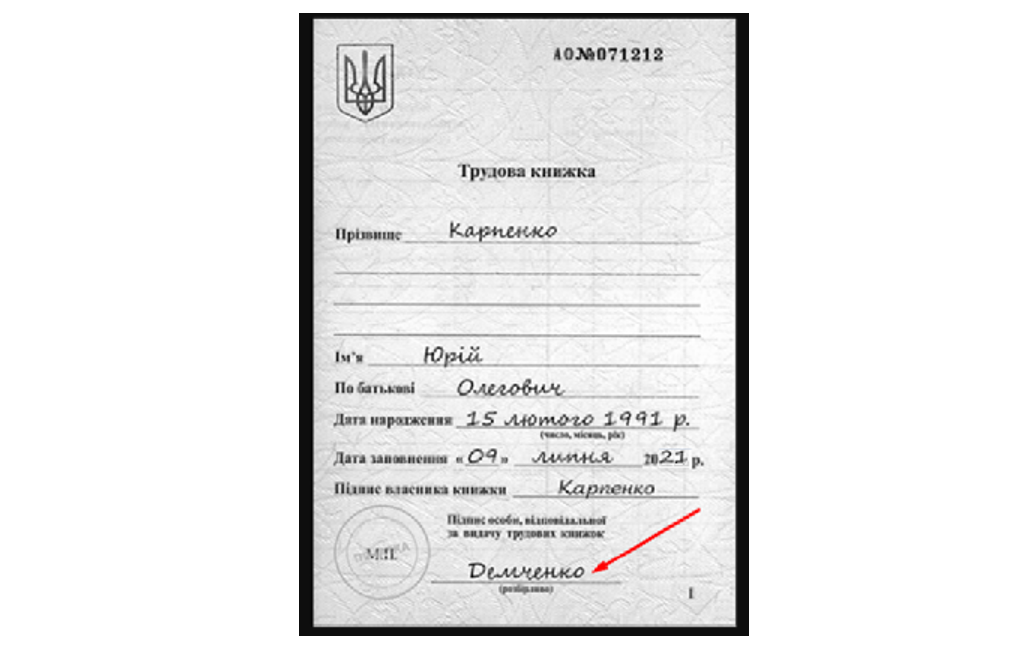 АО№071212
Трудова книжка
Прізвище Карпенко
Ім'я Юрій
По батькові Олегович
Дата народження 15 лютого 1991 р.
(число, місяць, рік)
Дата заповнення «09» липня 2021 р.
Підпис власника книжки Карпенко
Підпис особи, відповідальної
за видачу трудових книжок
М.П.
Демченко
(розбірливо)
1